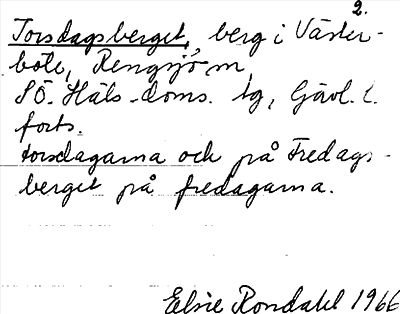 2.
Torsdagsberget, berg i Väster-
böle, Rengsjö m,
SÖ. Häls. doms. tg, Gävl. l.
forts.
torsdagarna och på Fredags-
berget på fredagarna.
Elsie Rondahl 1966